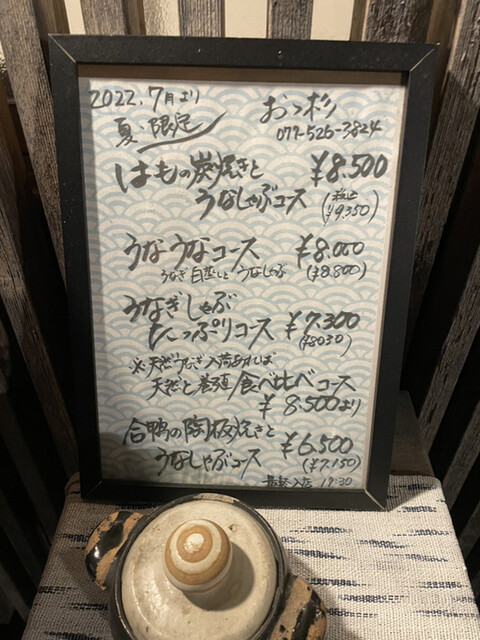 2022.7月より
夏 限定
おっ杉
077-526-3824
はもの炭焼きと ¥8.500
うなしゃぶコース (税込¥9.350)
うなうなコース ¥8.000
うなぎ白蒸しと うなしゃぶ (¥8.800)
うなぎしゃぶ
たっぷりコース ¥7.300
(¥8030)
※天然うなぎ入荷あれば
天然と養殖食べ比べコース
¥8.500より
合鴨の陶板焼きと ¥6.500
うなしゃぶコース (¥7.150)
最終入店 19:30